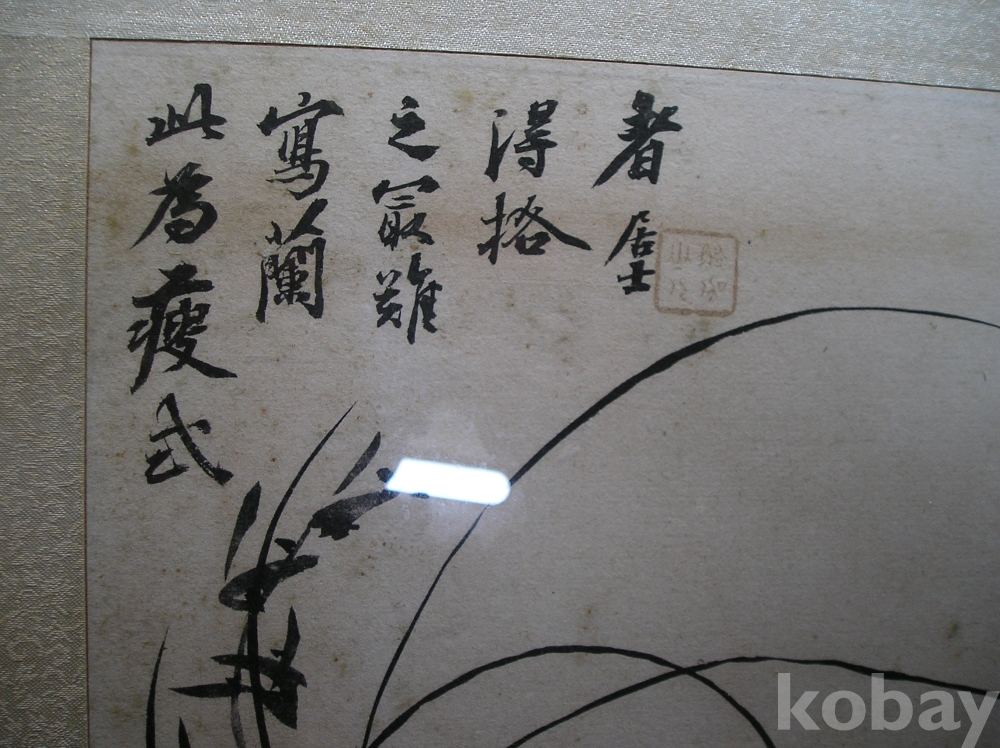 此為瘦式
寫蘭
之最難
得格
者 居士
kobay